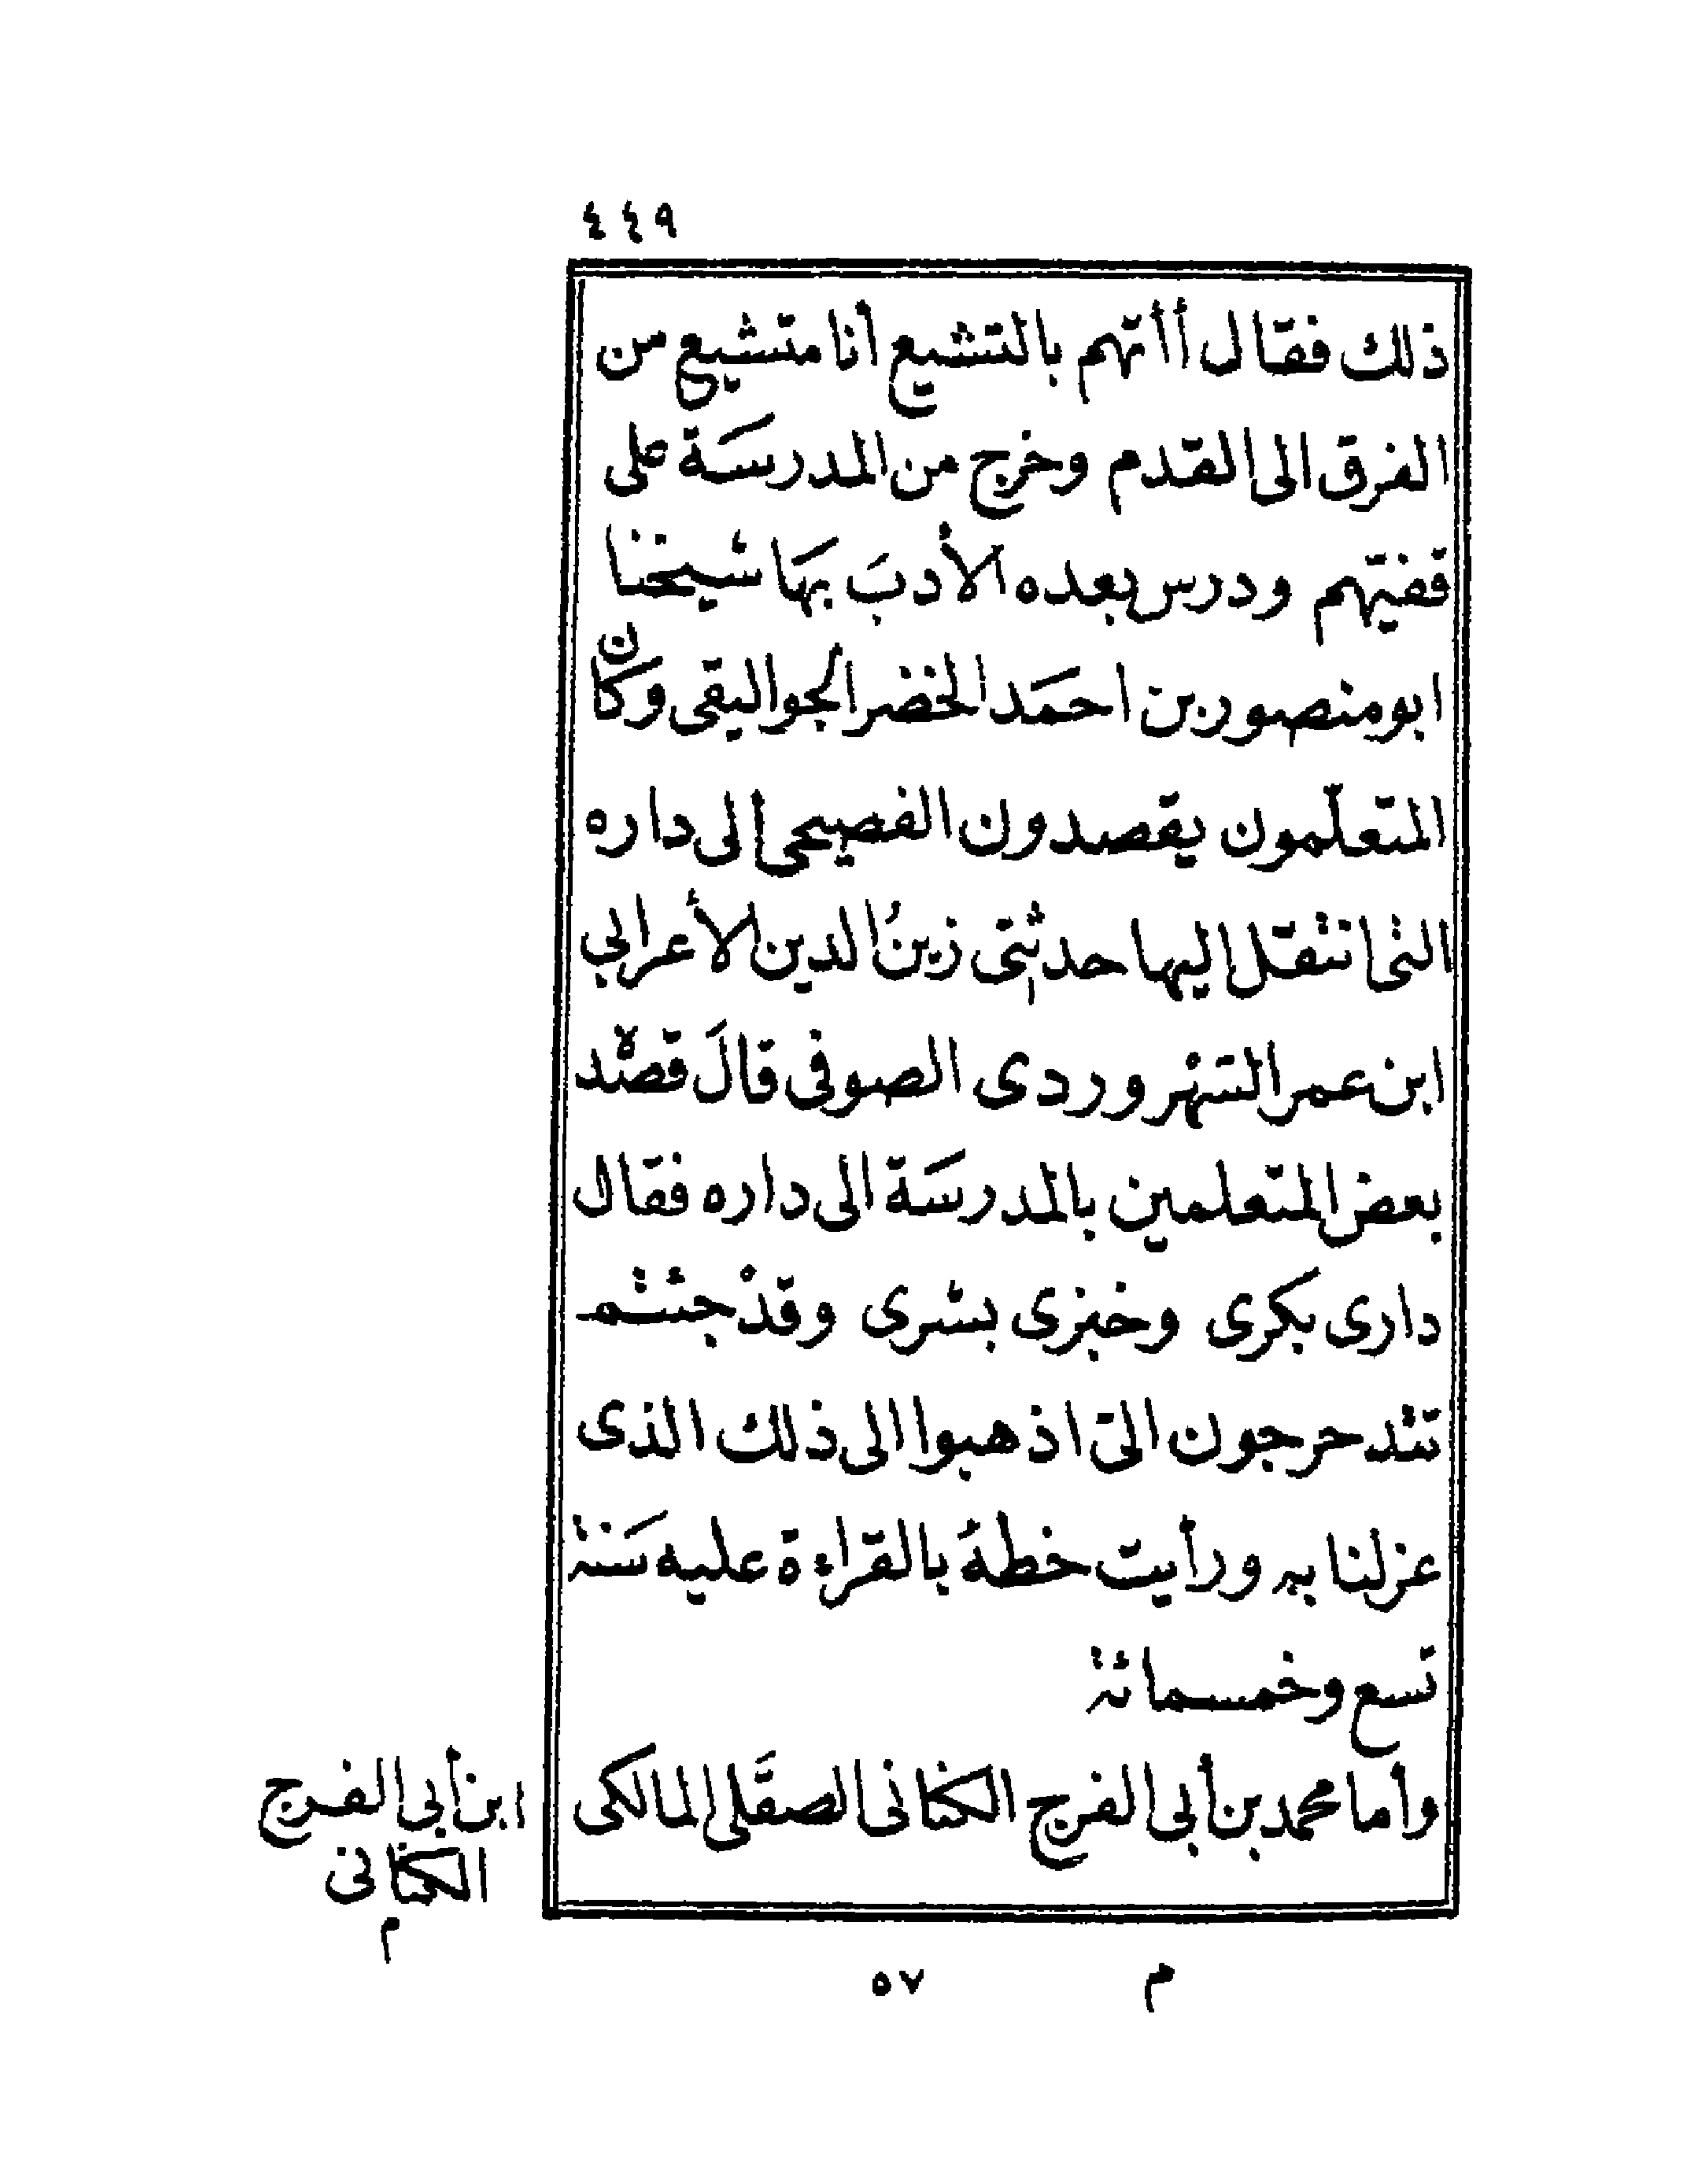 ٤٤٩
ذلك فقال أأتهم بالتشيع أنا متشيع من
الفرق الى القدم وخرج من المدرسَة على
قفيتهم ودرس بعده الأدبَ بهَا شيخنا
ابو منصور بن احمَد الخضر الجواليقى وكان
المتعلّمون يقصدون الفصيحى إلى داره
التى انتقل اليها حدثنى زينُ الدين لأعرابي
ابن عمر الشهروردى الصوفى قالَ قصده
بعض المتعلمين بالمدرسَة الى داره فقال
دارى بكرى وخبزى بشرى وقدْ جئتم
تتدحرجون الىّ اذهبوا الى ذلك الذى
عزلنا به ورأيت خطهُ بالقراءة عليه سَنة
تسع وخمسمائة
وأما محمد بن أبى الفرج الكنانى الصقَلى المالكى
ابن أبى الفرج
الكنانى
م
م ٥٧